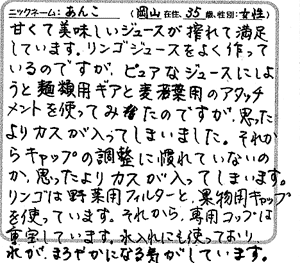 ニックネーム：あんこ （岡山在住、35歳、性別：女性）
甘くて美味しいジュースが搾れて満足
しています。リンゴジュースをよく作って
いるのですが、ピュアなジュースにしよ
うと麺類用ギアと麦若葉用のアタッチ
メントを使ってみたのですが、思った
よりカスが入ってしまいました。それか
らキャップの調整に慣れていないの
か、思ったよりカスが入ってしまいます。
リンゴは野菜用フィルターと、果物用キャップ
を使っています。それから、専用コップは
重宝しています。氷入れにも使っており、
氷が、まろやかになる気がしています。